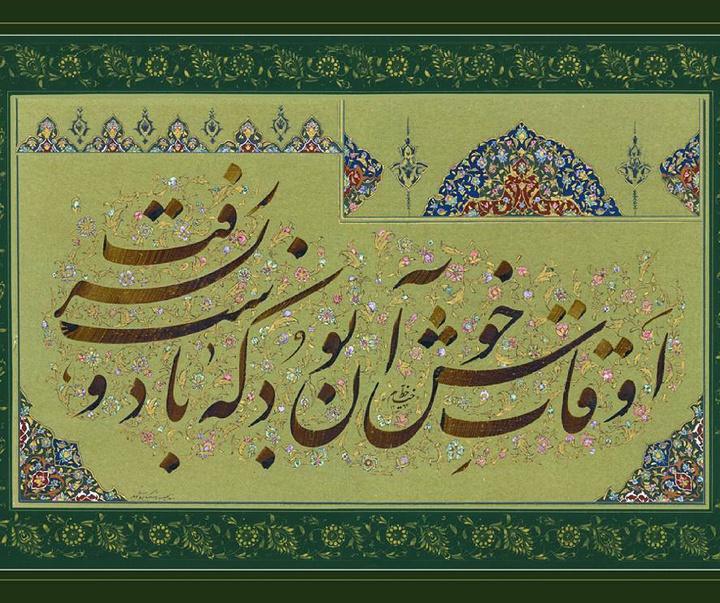 اوقات خوش آن بود که با دوست بسر رفت